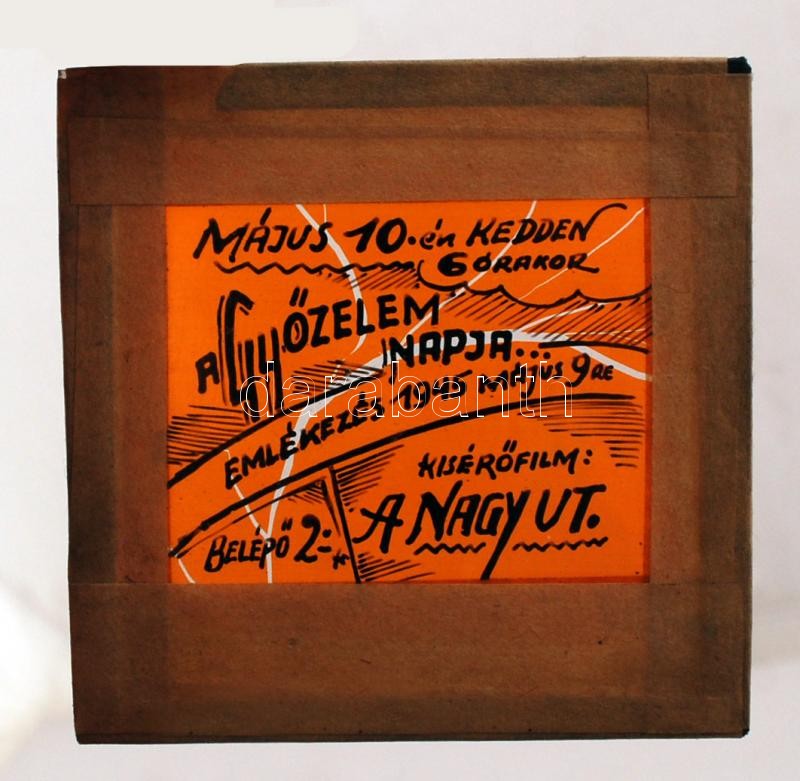 MÁJUS 10.-én KEDDEN
6 ÓRAKOR
A GYŐZELEM
NAPJA...
EMLÉKEZÉS 1945 MÁJUS 9 RE
darabanth
KISÉRŐFILM:
A NAGY UT.
BELÉPŐ 2.-